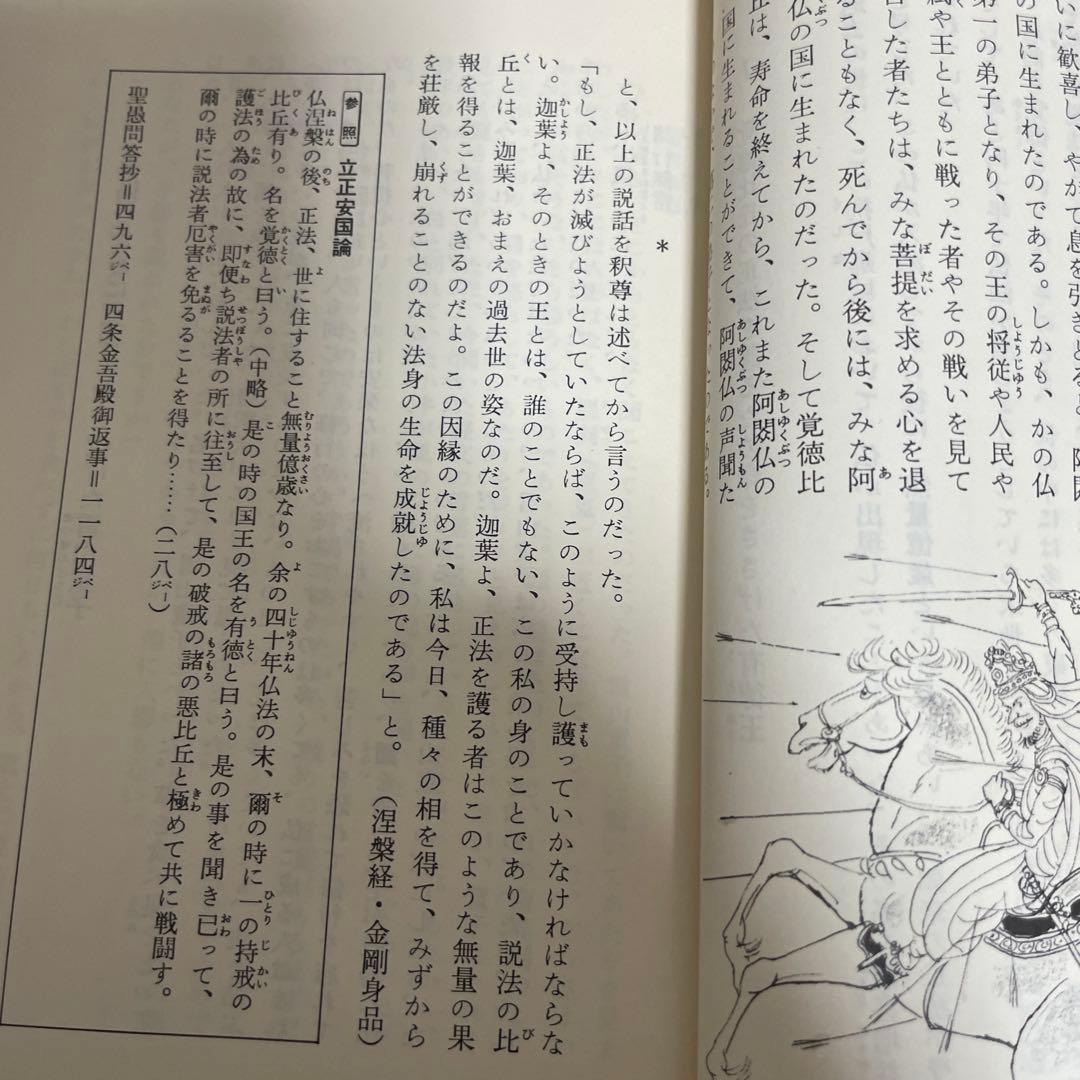 いに歓喜し、やがて息を引きとる。阿閦
の国に生まれたのである。しかも、かの仏
第一の弟子となり、その王の将従や人民や
属や王とともに戦った者やその戦いを見て
した者たちは、みな菩提を求める心を退
ることもなく、死んでから後には、みな阿
仏の国に生まれたのだった。そして覚徳比
丘は、寿命を終えてから、これまた阿閦仏の
国に生まれることができて、阿閦仏の声聞た
＊
と、以上の説話を釈尊は述べてから言うのだった。
「もし、正法が滅びようとしていたならば、このように受持し護っていかなければならな
い。迦葉よ、そのときの王とは、誰のことでもない、この私の身のことであり、説法の比
丘とは、迦葉、おまえの過去世の姿なのだ。迦葉よ、正法を護る者はこのような無量の果
報を得ることができるのだよ。この因縁のために、私は今日、種々の相を得て、みずから
を荘厳し、崩れることのない法身の生命を成就したのである」と。　（涅槃経・金剛身品）
参照 立正安国論
仏涅槃の後、正法、世に住すること無量億歳なり。余の四十年仏法の末、爾の時に一の持戒の
比丘有り。名を覚徳と曰う。（中略）是の時の国王の名を有徳と曰う。是の事を聞き已って、
護法の為の故に、即便ち説法者の所に往至して、是の破戒の諸の悪比丘と極めて共に戦闘す。
爾の時に説法者厄害を免るることを得たり……（二八ページ）
聖愚問答抄＝四九六ページ　四条金吾殿御返事＝一一八四ページ